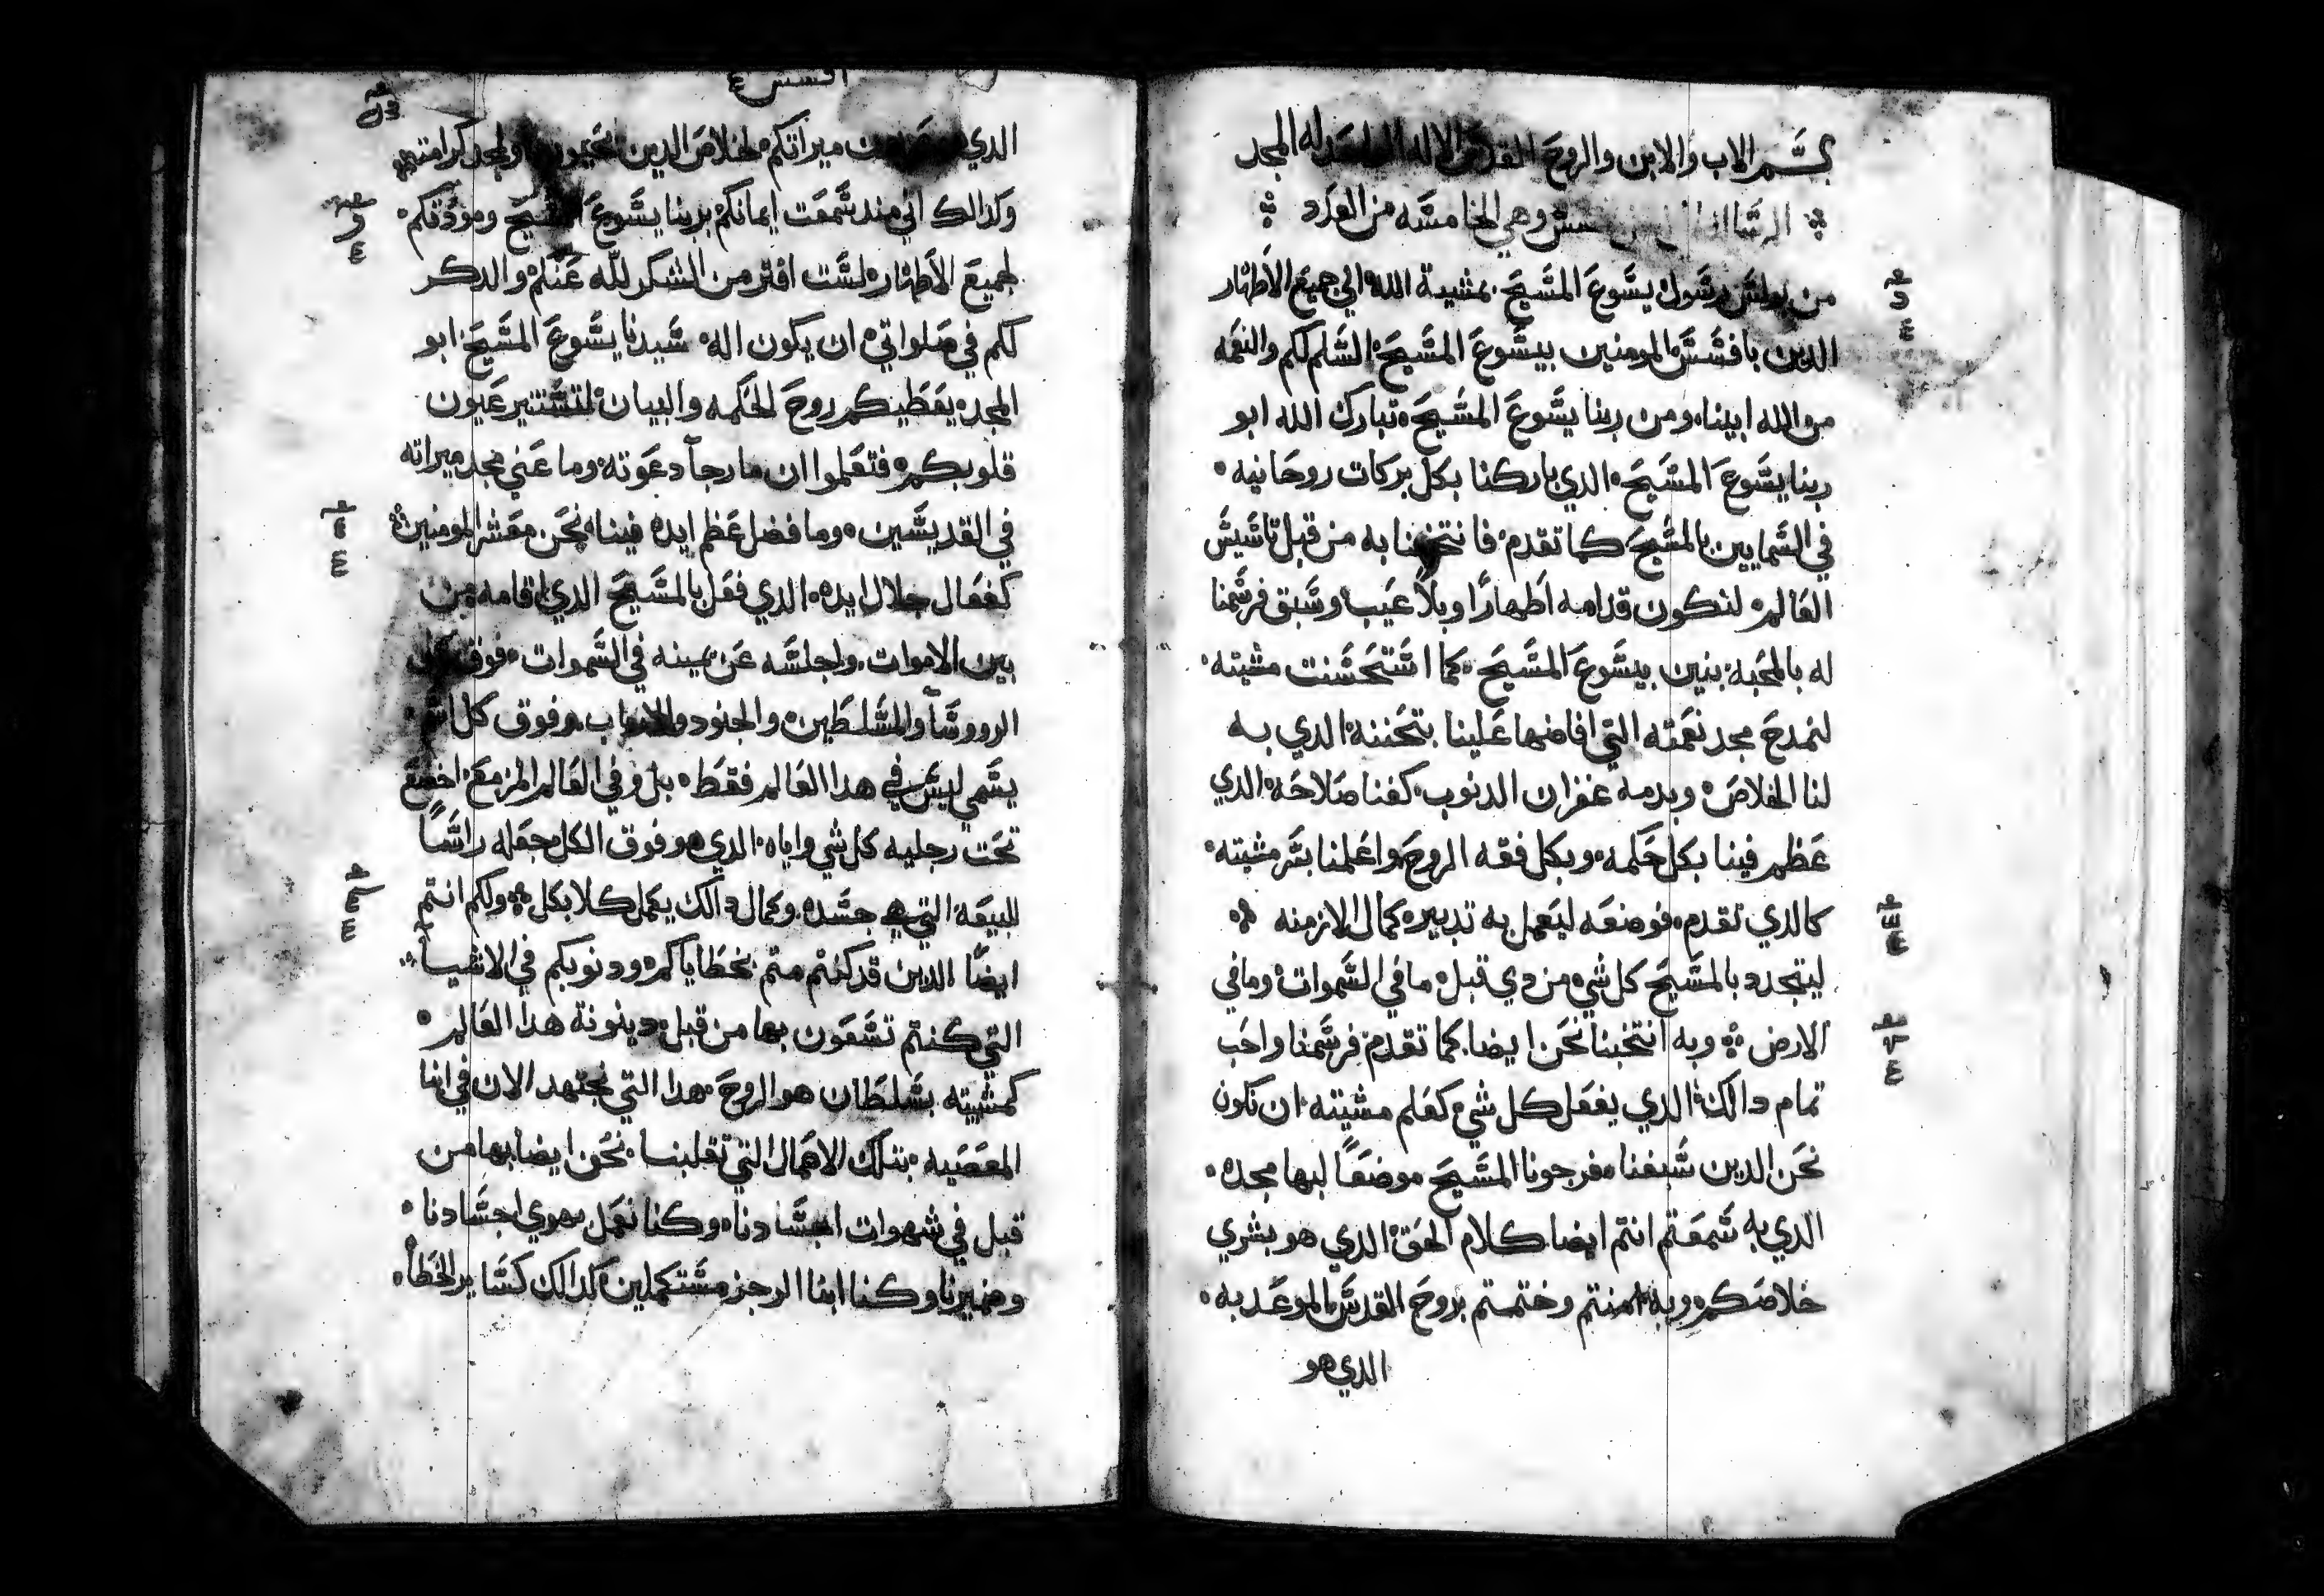 بسم الاب والابن والروح القدس الاله الواحد له المجد
وهي الخامسه من العدد
من بولس رسول يسوع المسيح بمشية الله الي جميع الاطهار
الدين بافسس المومنين بيسوع المسيح السلم لكم والنعمه
من الله ابينا ومن ربنا يسوع المسيح تبارك الله ابو
ربنا يسوع المسيح الدي باركنا بكل بركات روحانيه
في السماييين بالمسيح كما تقدم فانتخبنا به من قبل تاسيس
العالم لنكون قدامه اطهارًا وبلا عيب وسبق فرسمنا
له بالمحبه بنين بيسوع المسيح كما استحسنت مشيته
لنمدح مجد نعمته التي افاضها علينا بتحننه الدي به
لنا الخلاص وبدمه غفران الدنوب كفنا صلاحه الدي
عظم فينا بكل حكمه وبكل فقه الروح واعلمنا بسر مشيته
كالدي تقدم فوضعه ليعمل به تدبيره كمال الازمنه
ليتجدد بالمسيح كل شي من دي قبل ما في السموات وما في
الارض وبه انتخبنا نحن ايضا كما تقدم فرسمنا واحب
تمام دالك الدي يفعل كل شي كعلم مشيته ان نكون
نحن الدين سبقنا فرجونا المسيح موضعًا لبها مجده
الدي به سمعتم انتم ايضا كلام الحق الدي هو بشري
خلاصكم وبه امنتم وختمتم بروح القدس الموعد به
الدي هو
افسس
الدي ميراتكم لخلاص الدين ولمجد كرامته
وكدالك اني مند سمعت ايمانكم بربنا يسوع المسيح ومودتكم
لجميع الاطهار لست افتر من الشكر لله عنكم والدكر
لكم في صلواتي ان يكون اله سيدنا يسوع المسيح ابو
المجد يعطيكم روح الحكمه والبيان لتستنير عيون
قلوبكم فتعلموا ان ما رجا دعوته وما غني مجد ميراته
في القديسين وما فضل عظم ايده فينا نحن معشر المومنين
كفعال جلال ايده الدي فعل بالمسيح الدي اقامه من
بين الاموات واجلسه عن يمينه في السموات فوق كل
الرووسا والسلطين والجنود والارباب وفوق كل اسم
يسمي ليس في هدا العالم فقط بل وفي العالم المزمع اخضع
تحت رجليه كل شي واياه الدي هو فوق الكل جعله راسًا
للبيعه التي هي جسده وكمال دالك يكمل كلا بكل ولكم انتم
ايضًا الدين قد كنتم متم بخطاياكم ودنوبكم في الاشيا
التي كنتم تسعون بها من قبل دينونة هدا العالم
كمشيته بسلطان هو الروح هدا التي يجتهد الان في ابنا
المعصيه بتلك الاعمال التي تقلبنا نحن ايضا بها من
قبل في شهوات اجسادنا وكنا نعمل بهوي اجسادنا
وضميرنا وكنا ابنا الرجز مستكملين كدالك كساير الخطاه